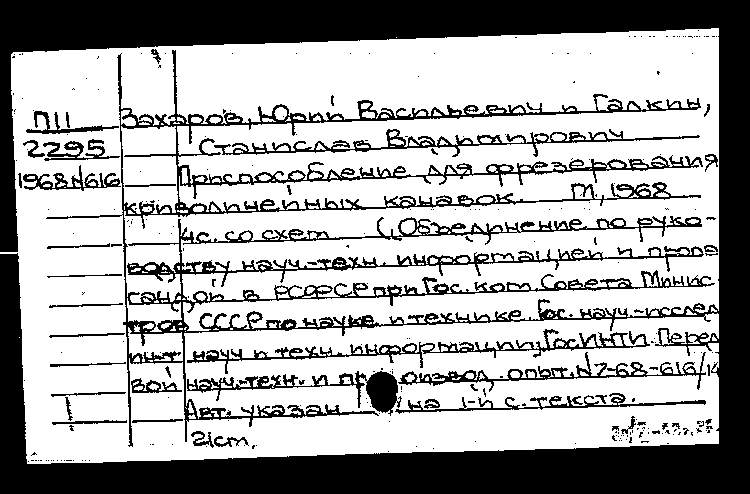 П11 Захаров, Юрий Васильевич и Галкин,
2295 Станислав Владимирович
1968 N616 Приспособление для фрезерования
криволинейных канавок. М, 1968
4с. со схем. (Объединение по руко-
водству науч.-техн. информацией и пропа
гандой в РСФСР при Гос. ком. Совета Минис
тров СССР по науке и технике. Гос. науч.-исслед
ин-т науч и техн. информации, ГосИНТИ. Перед
вой науч.-техн. и произвол. опыт. N2-68-616/14
Авт. указан на 1-й с. текста.
21см.